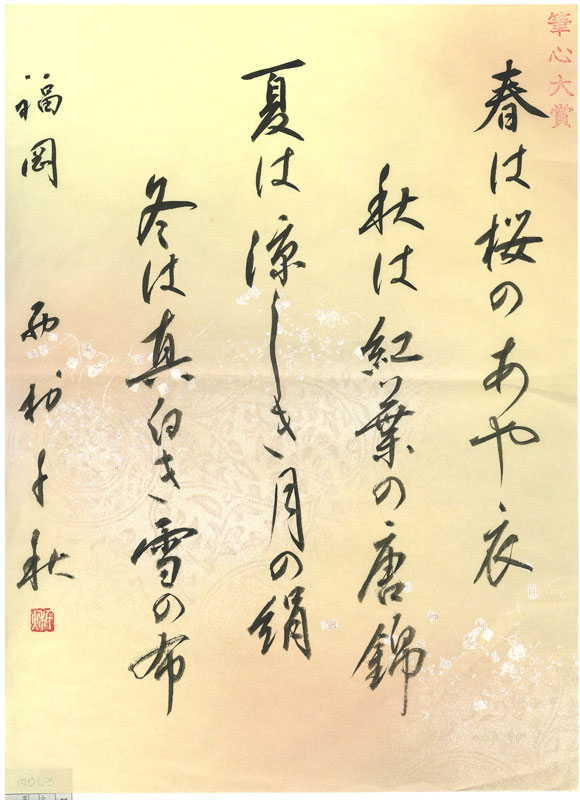 筆心大賞
春は桜のあや衣
秋は紅葉の唐錦
夏は涼しき月の絹
冬は真白き雪の布
福岡 西村千秋
のりしろ